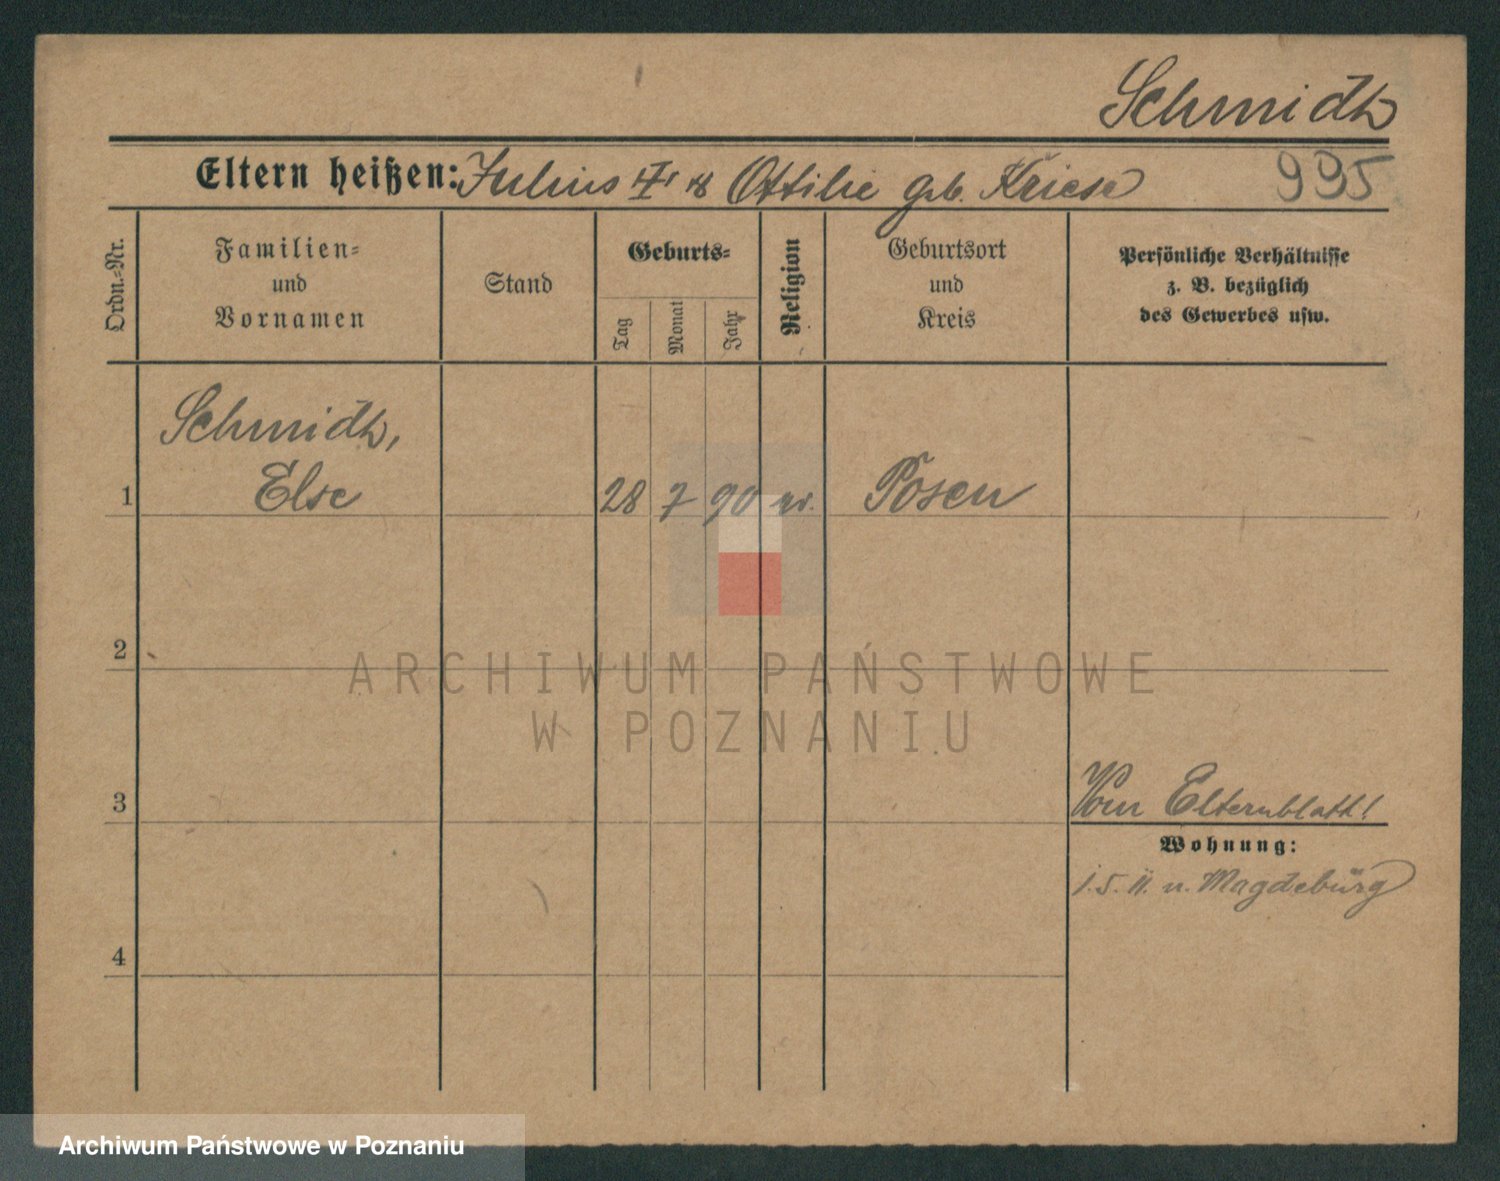 Schmidt
Eltern heißen: Julius I. & Ottilie geb. Kriese
995
Ordn.-Nr.
Familien-
und
Vornamen
Stand
Geburts-
Tag
Monat
Jahr
Religion
Geburtsort
und
Kreis
Persönliche Verhältnisse
z. B. bezüglich
des Gewerbes usw.
Schmidt,
1 Else 28 7 90 Posen
2
ARCHIWUM PAŃSTWOWE
W POZNANIU
3
Vom Elternblatt!
Wohnung:
n. Magdeburg
4
Archiwum Państwowe w Poznaniu